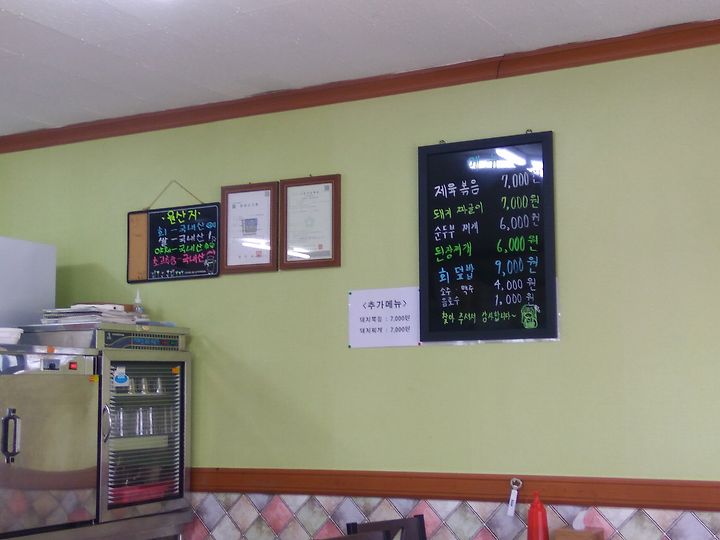 ·원산지·
회 - 국내산
쌀 - 국내산
야채 - 국내산
고추가루 - 국내산
<추가메뉴>
돼지볶음 : 7,000원
돼지찌개 : 7,000원
제육볶음 7,000원
돼지 짜글이 7,000원
순두부 찌개 6,000원
된장찌개 6,000원
회 덮밥 9,000원
소주·맥주 4,000원
음료수 1,000원
찾아 주셔서 감사합니다~